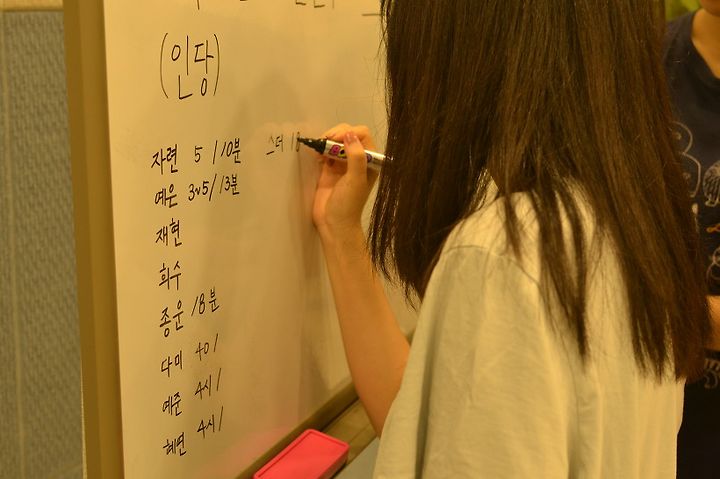 (인당)
자련 5 / 10분 스터 18
예은 3~5 / 13분
재현
희수
종운 18분
다미 40 /
예준 4시 /
혜련 4시 /